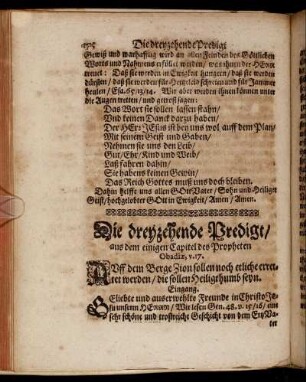 Die dreyzehende Predigt
Gewiß und warhafftig wird an allen Feinden des Göttlichen
Worts und Nahmens erfüllet werden, was ihnen der HErr
dreuet: Daß sie werden in Ewigkeit hungern, daß sie werden
dürsten, daß sie werden für Hertzleid schreien und für Jammer
heulen, Esa. 65/13/14. Wir aber werden ihnen können unter
die Augen tretten, und getrost sagen:
Das Wort sie sollen lassen stahn,
Und keinen Danck darzu haben,
Der HErr JEsus ist bey uns wol auff dem Plan,
Mit seinem Geist und Gaben,
Nehmen sie uns den Leib,
Gut, Ehr, Kind und Weib,
Laß fahren dahin,
Sie habens keinen Gewin,
Das Reich Gottes muß uns doch bleiben.
Dahin helffe uns allen GOtt Vater, Sohn und Heiliger
Geist, hochgelobter GOtt in Ewigkeit, Amen, Amen.
Die dreyzehende Predigt,
aus dem einigen Capitel des Propheten
Obadiæ, v. 17.
AUff dem Berge Zion sollen noch etliche erret-
tet werden, die sollen Heiligthum seyn.
Eingang.
GEliebte und auserwehlte Freunde in Christo Je-
su unserm HErren, Wir lesen Gen. 48. v. 15/16, eine
sehr schöne und trostreiche Geschicht von dem Ertz-Va-
ter